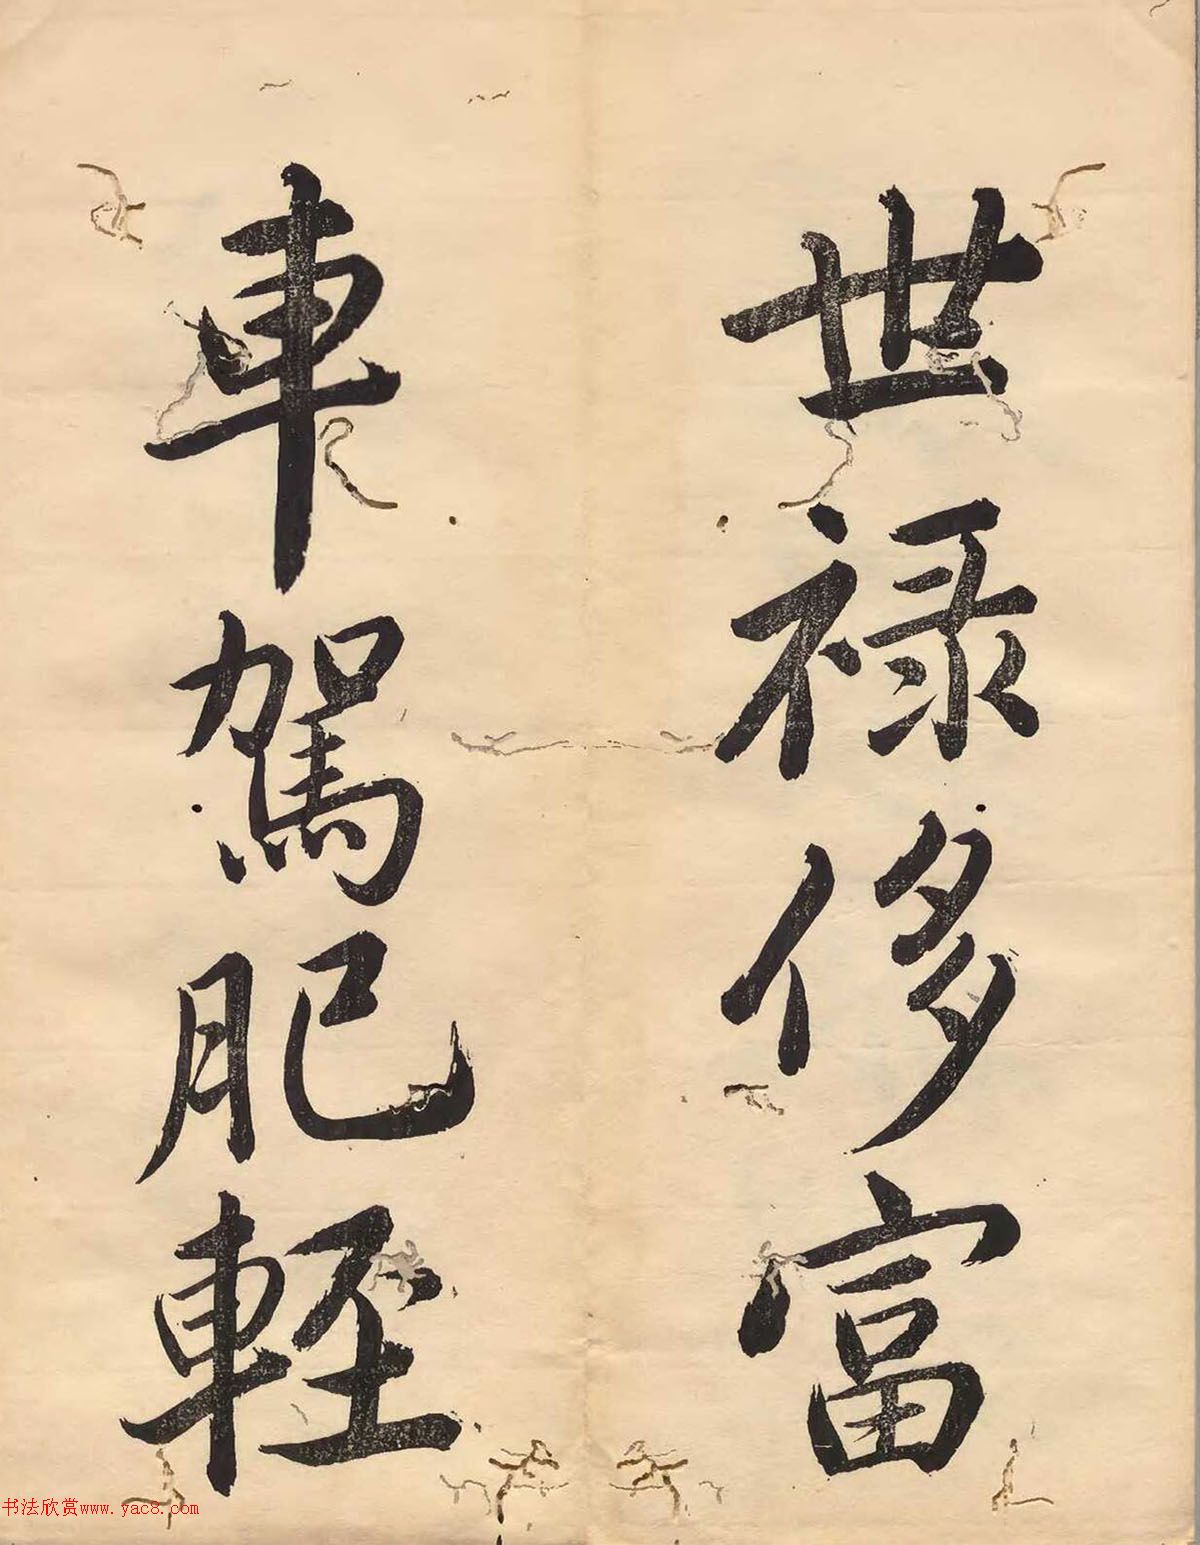 世禄侈富
車駕肥輕
书法欣赏www.yac8.com